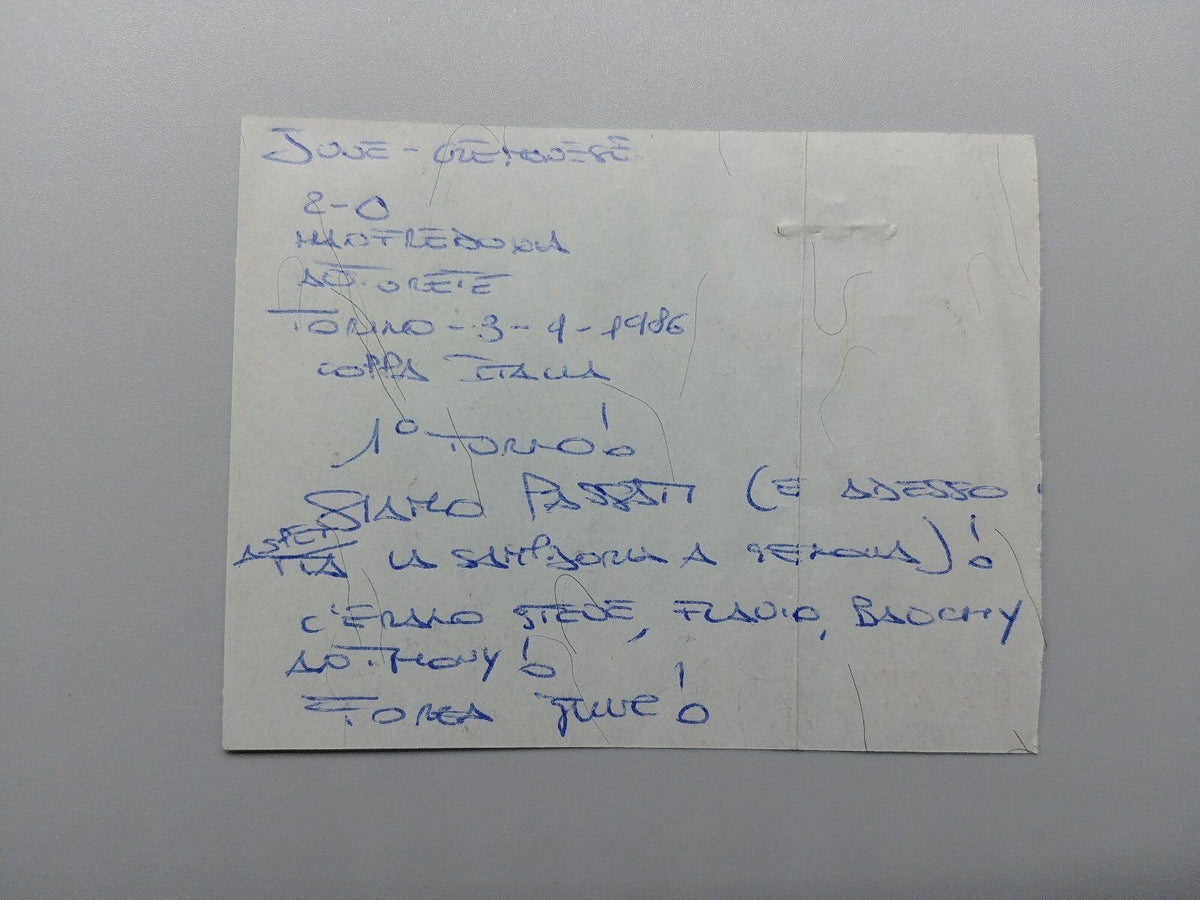 JUVE - CREMONESE
2-0
MANFREDONIA
AUTORETE
TORINO - 3-9-1986
COPPA ITALIA
1° TURNO!
SIAMO PASSATI (E ADESSO
ASPETTIAMO LA SAMPDORIA A GENOVA)!
C'ERANO STEVE, FLAVIO,
ANTHONY!
FORZA JUVE!